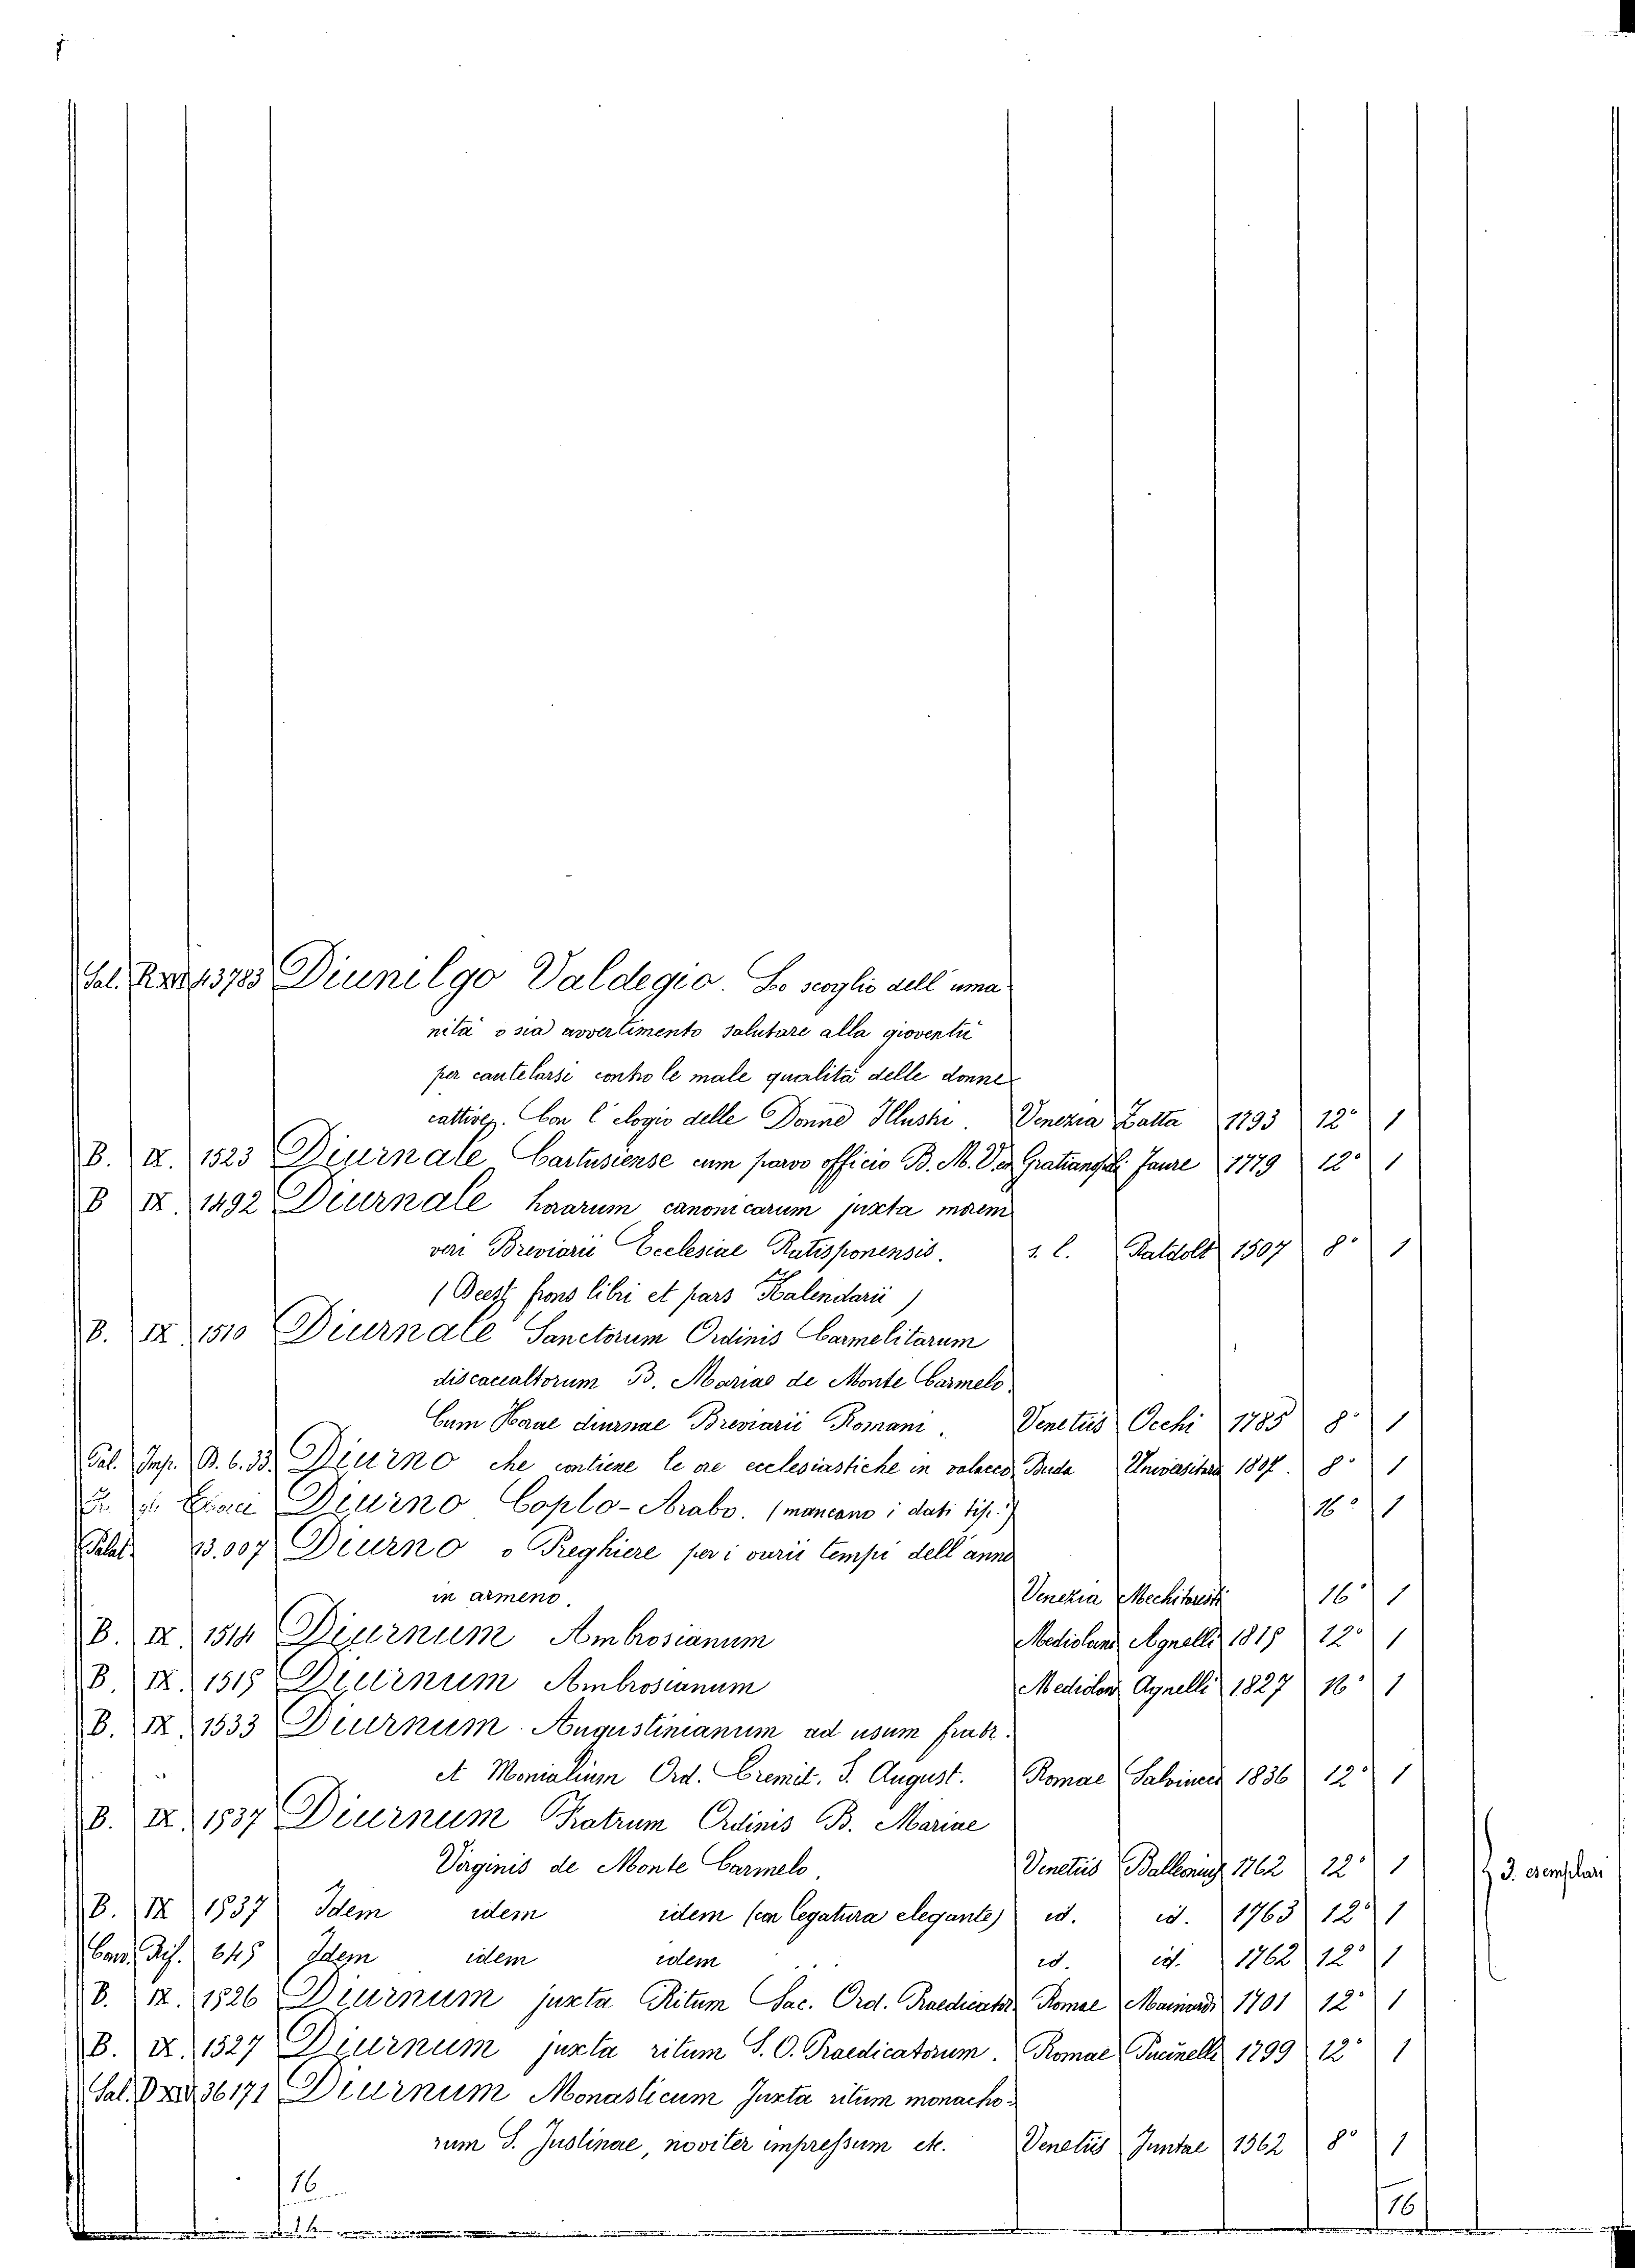 Sal. 13783 Diunilgo Valdegio. Lo scoglio dell'uma
nità o sia avvertimento salutare alla gioventù
per cautelarsi contro le male qualità delle donne
cattive. Con l'elogio delle Donne Illustri. Venezia Zatta 1793 12° 1
B. IX. 1523 Diurnale Cartusiense cum parvo officio B. M. Vir. Gratianopoli Faure 1779 12° 1
B IX. 1492 Diurnale horarum canonicarum juxta morem
veri Breviarii Ecclesiae Ratisponensis. s. l. Ratdolt 1507 8° 1
(Deest frons libri et pars Kalendarii)
B. IX 1510 Diurnale Sanctorum Ordinis Carmelitarum
discacealtorum B. Mariae de Monte Carmelo.
Cum Horae diurnae Breviarii Romani. Venetiis Occhi 1785 8° 1
Sal. Imp. B. 6. 33. Diurno che contiene le ore ecclesiastiche in valacco Buda Universitaria 8° 1
Diurno Copto-Arabo. (mancano i dati tip.) 16° 1
Palat. 23.007 Diurno o Preghiere per i varii tempi dell'anno
in armeno. Venezia Mechitaristi 16° 1
B. IX 1514 Diurnum Ambrosianum Mediolani Agnelli 1815 12° 1
B. IX. 1515 Diurnum Ambrosianum Mediolan Agnelli 1827 16° 1
B. IX. 1533 Diurnum Augustinianum ad usum fratr.
et Monialium Ord. Eremit. S. August. Romae Salviucci 1836 12° 1
B. IX. 1537 Diurnum Fratrum Ordinis B. Mariae
Virginis de Monte Carmelo. Venetiis Balleoniana 1762 12° 1 3. esemplari
B. IX 1537 Idem idem idem (con legatura elegante) id. id. 1763 12° 1
645 Idem idem idem id. id. 1762 12° 1
B. IX. 1526 Diurnum juxta Ritum Sac. Ord. Praedicator. Romae Mainardi 1701 12° 1
B. IX. 1527 Diurnum juxta ritum S. O. Praedicatorum. Romae Pucinelli 1799 12° 1
Sal. 36171 Diurnum Monasticum Juxta ritum monacho-
rum S. Justinae, noviter impressum etc. Venetiis Juntae 1562 8° 1
16 16